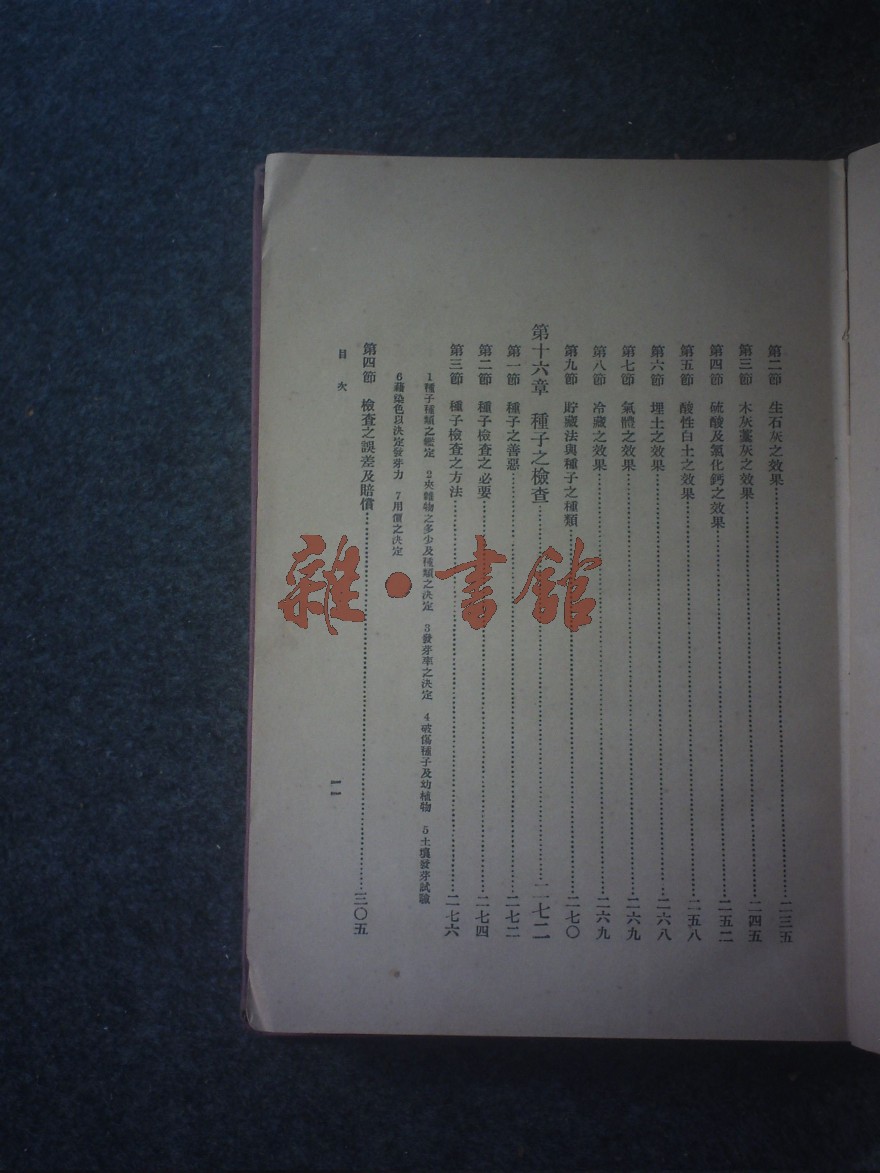 第二節　生石灰之效果……二三五
第三節　木灰藁灰之效果……二四五
第四節　硫酸及氯化鈣之效果……二五二
第五節　酸性白土之效果……二五八
第六節　埋土之效果……二六八
第七節　氣體之效果……二六九
第八節　冷藏之效果……二六九
第九節　貯藏法與種子之種類……二七〇
第十六章　種子之檢查……二七二
第一節　種子之善惡……二七二
第二節　種子檢查之必要……二七四
第三節　種子檢查之方法……二七六
1種子種類之鑑定　2夾雜物之多少及種類之決定　3發芽率之決定　4破傷種子及幼植物　5土壤發芽試驗
6藉染色以決定發芽力　7用價之決定
第四節　檢查之誤差及賠償……三〇五
目次
一一
雜・書館